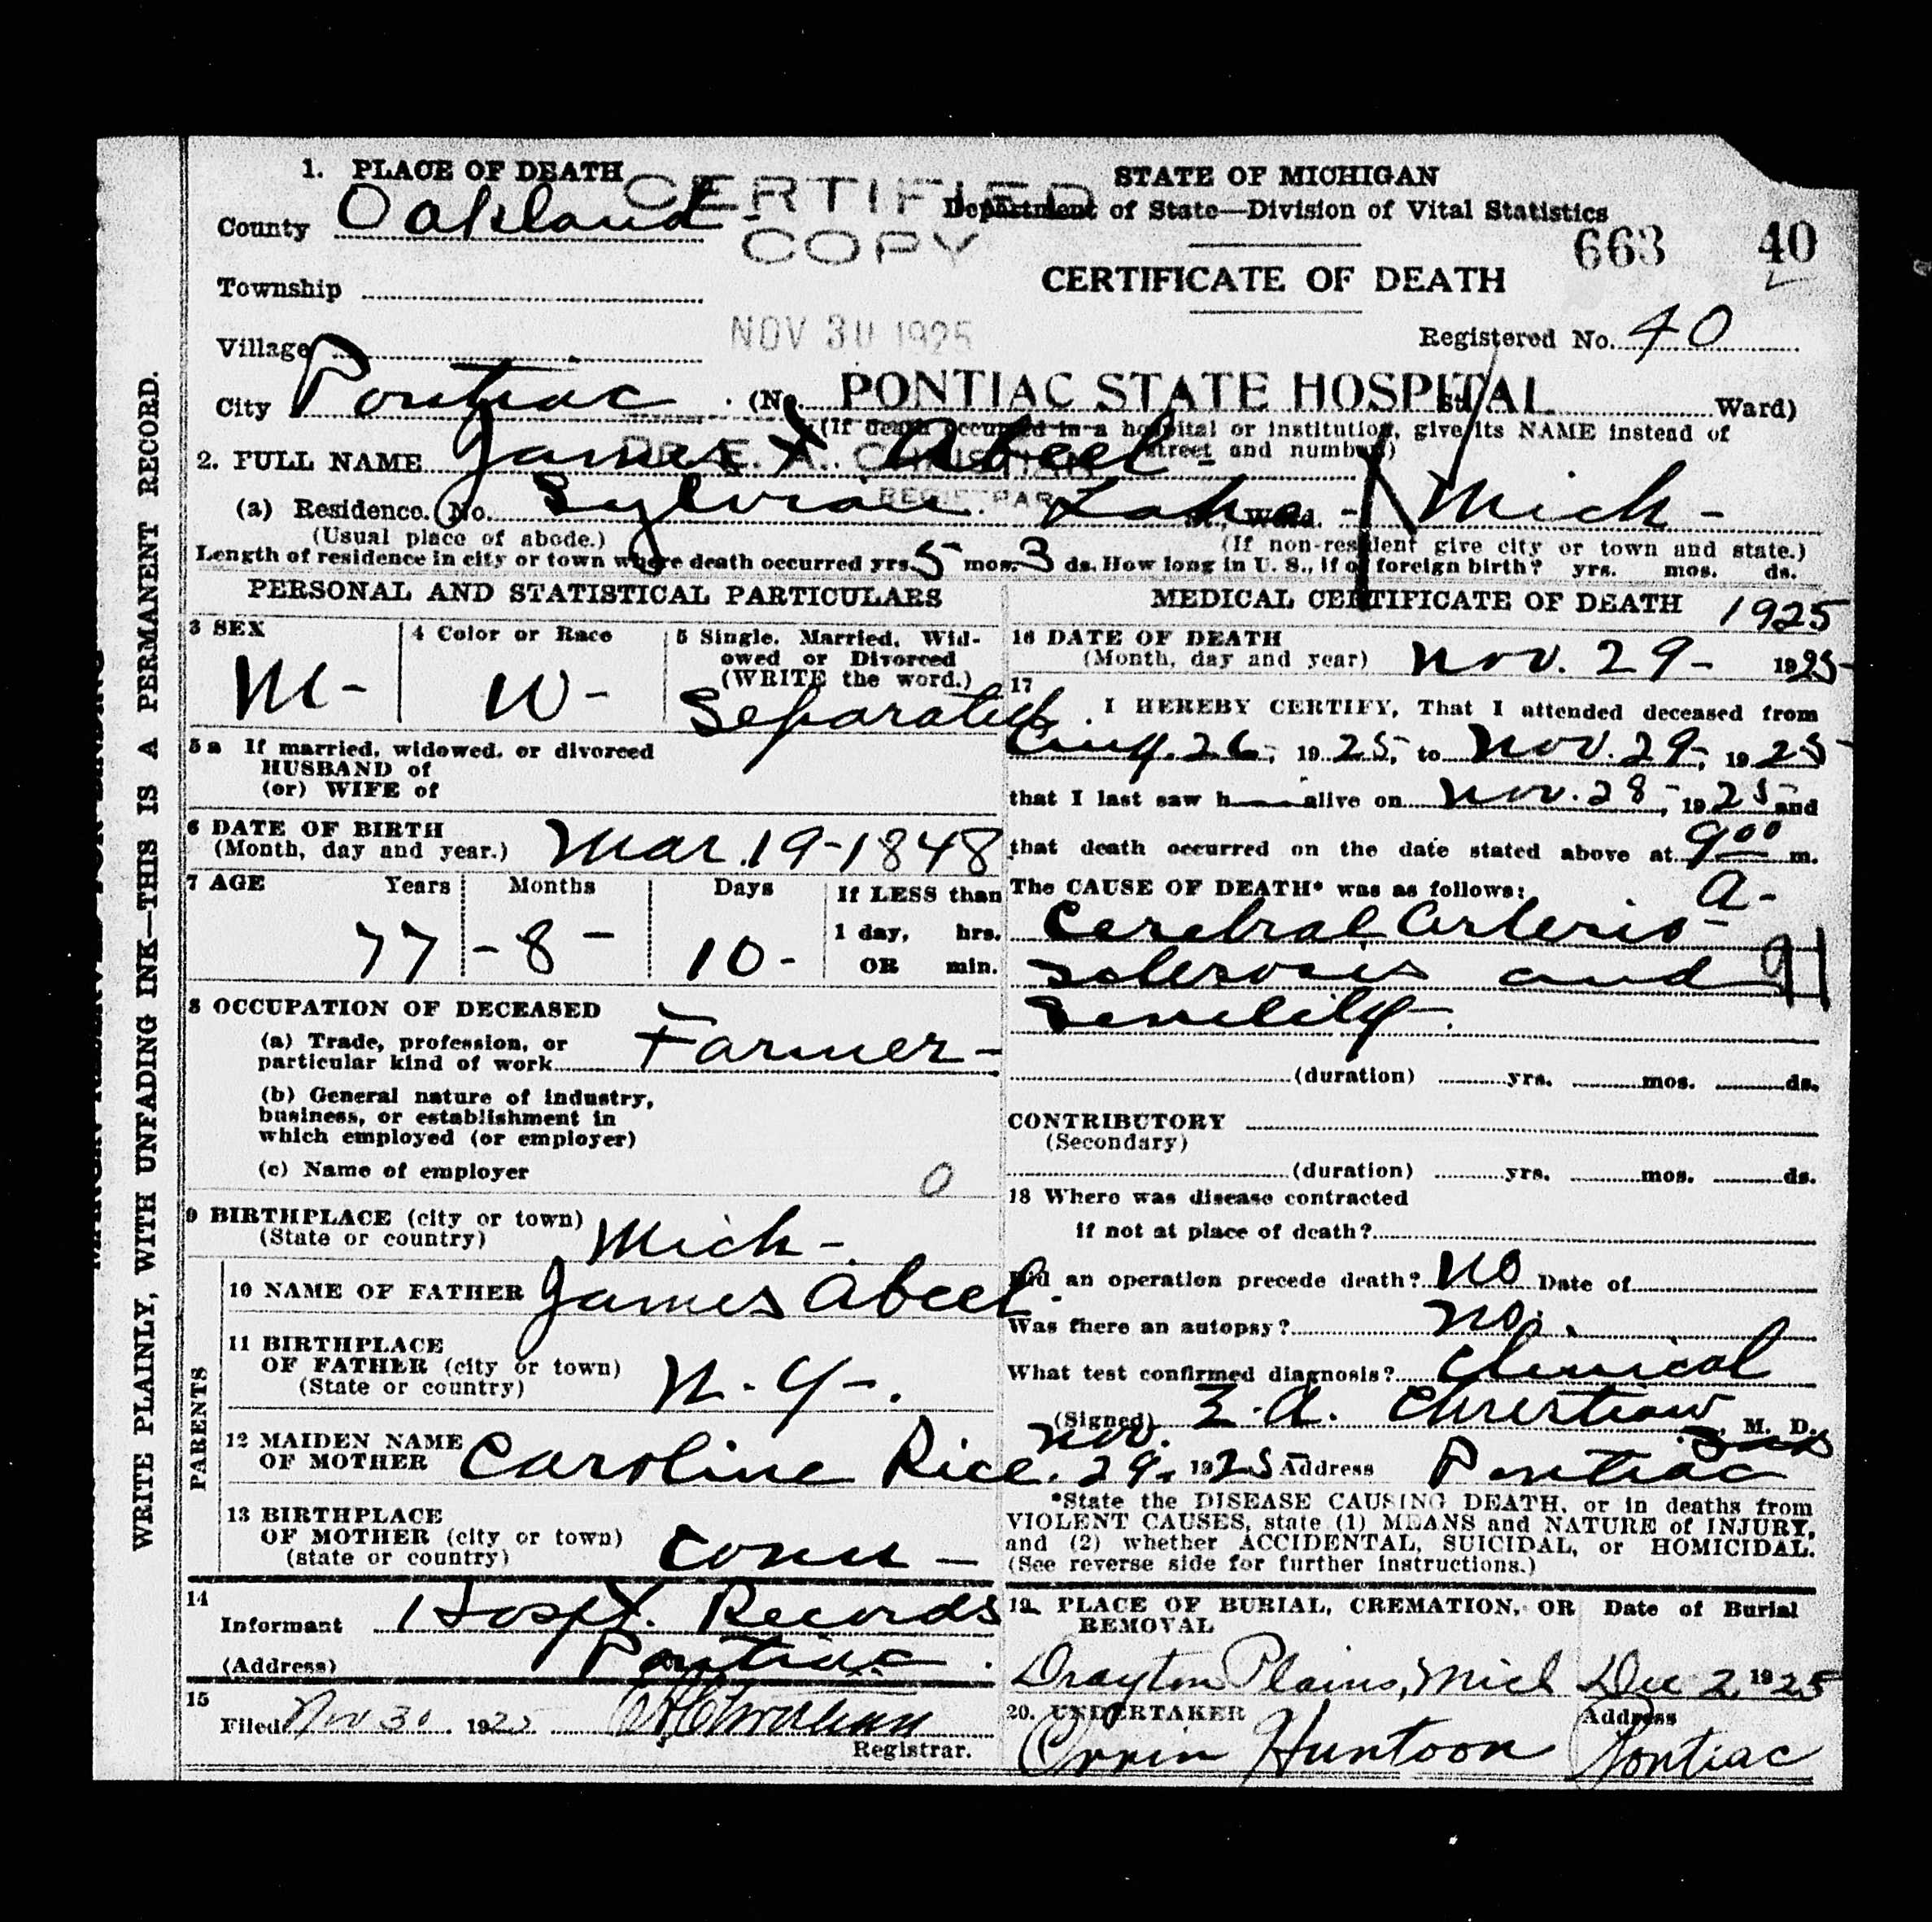 1. PLACE OF DEATH
County Oakland
CERTIFIED COPY
Township
NOV 30 1925
Village
City Pontiac
STATE OF MICHIGAN
Department of State—Division of Vital Statistics
663 40
CERTIFICATE OF DEATH
Registered No. 40
(No. PONTIAC STATE HOSPITAL St., Ward)
(If death occurred in a hospital or institution, give its NAME instead of
street and number)
DR. E. A. CHRISTIAN
REGISTRAR
2. FULL NAME James Abeel -
(a) Residence. No. Sylvan Lake St., Ward. - Mich -
(Usual place of abode.) (If non-resident give city or town and state.)
Length of residence in city or town where death occurred yrs. 5 mos. 3 ds. How long in U. S., if of foreign birth? yrs. mos. ds.
WRITE PLAINLY, WITH UNFADING INK—THIS IS A PERMANENT RECORD.
PERSONAL AND STATISTICAL PARTICULARS
3 SEX
M -
4 Color or Race
W -
5 Single, Married, Wid-
owed or Divorced
(WRITE the word.)
Separated
5a If married, widowed, or divorced
HUSBAND of
(or) WIFE of
6 DATE OF BIRTH
(Month, day and year.) Mar. 19-1848
7 AGE Years Months Days If LESS than
1 day, hrs.
77 - 8 - 10 - OR min.
8 OCCUPATION OF DECEASED
(a) Trade, profession, or
particular kind of work Farmer -
(b) General nature of industry,
business, or establishment in
which employed (or employer)
(c) Name of employer 0
9 BIRTHPLACE (city or town)
(State or country) Mich -.
PARENTS
10 NAME OF FATHER James Abeel.
11 BIRTHPLACE
OF FATHER (city or town)
(State or country) N. Y -.
12 MAIDEN NAME
OF MOTHER Caroline Rice.
13 BIRTHPLACE
OF MOTHER (city or town)
(state or country) Conn -
14
Informant Hospt. Records
(Address) Pontiac.
15
Filed Nov 30 1925
Registrar.
MEDICAL CERTIFICATE OF DEATH 1925
16 DATE OF DEATH
(Month, day and year) Nov. 29 - 1925 -
17
I HEREBY CERTIFY, That I attended deceased from
Aug. 26, 1925, to Nov. 29, 1925
that I last saw h alive on Nov. 28, 1925 and
that death occurred on the date stated above at 9 00 m.
The CAUSE OF DEATH* was as follows: A -
Cerebral Arterio -
sclerosis and 91
Senility -.
(duration) yrs. mos. ds.
CONTRIBUTORY
(Secondary)
(duration) yrs. mos. ds.
18 Where was disease contracted
if not at place of death?
Did an operation precede death? No Date of
Was there an autopsy? No.
What test confirmed diagnosis? Clinical
(Signed) E. A. Christian, M. D.
Nov. 29, 1925 Address Pontiac
*State the DISEASE CAUSING DEATH, or in deaths from
VIOLENT CAUSES, state (1) MEANS and NATURE of INJURY,
and (2) whether ACCIDENTAL, SUICIDAL, or HOMICIDAL.
(See reverse side for further instructions.)
19. PLACE OF BURIAL, CREMATION, OR Date of Burial
REMOVAL
Drayton Plains, Mich Dec 2, 1925
20. UNDERTAKER Address
Orrin Huntoon Pontiac